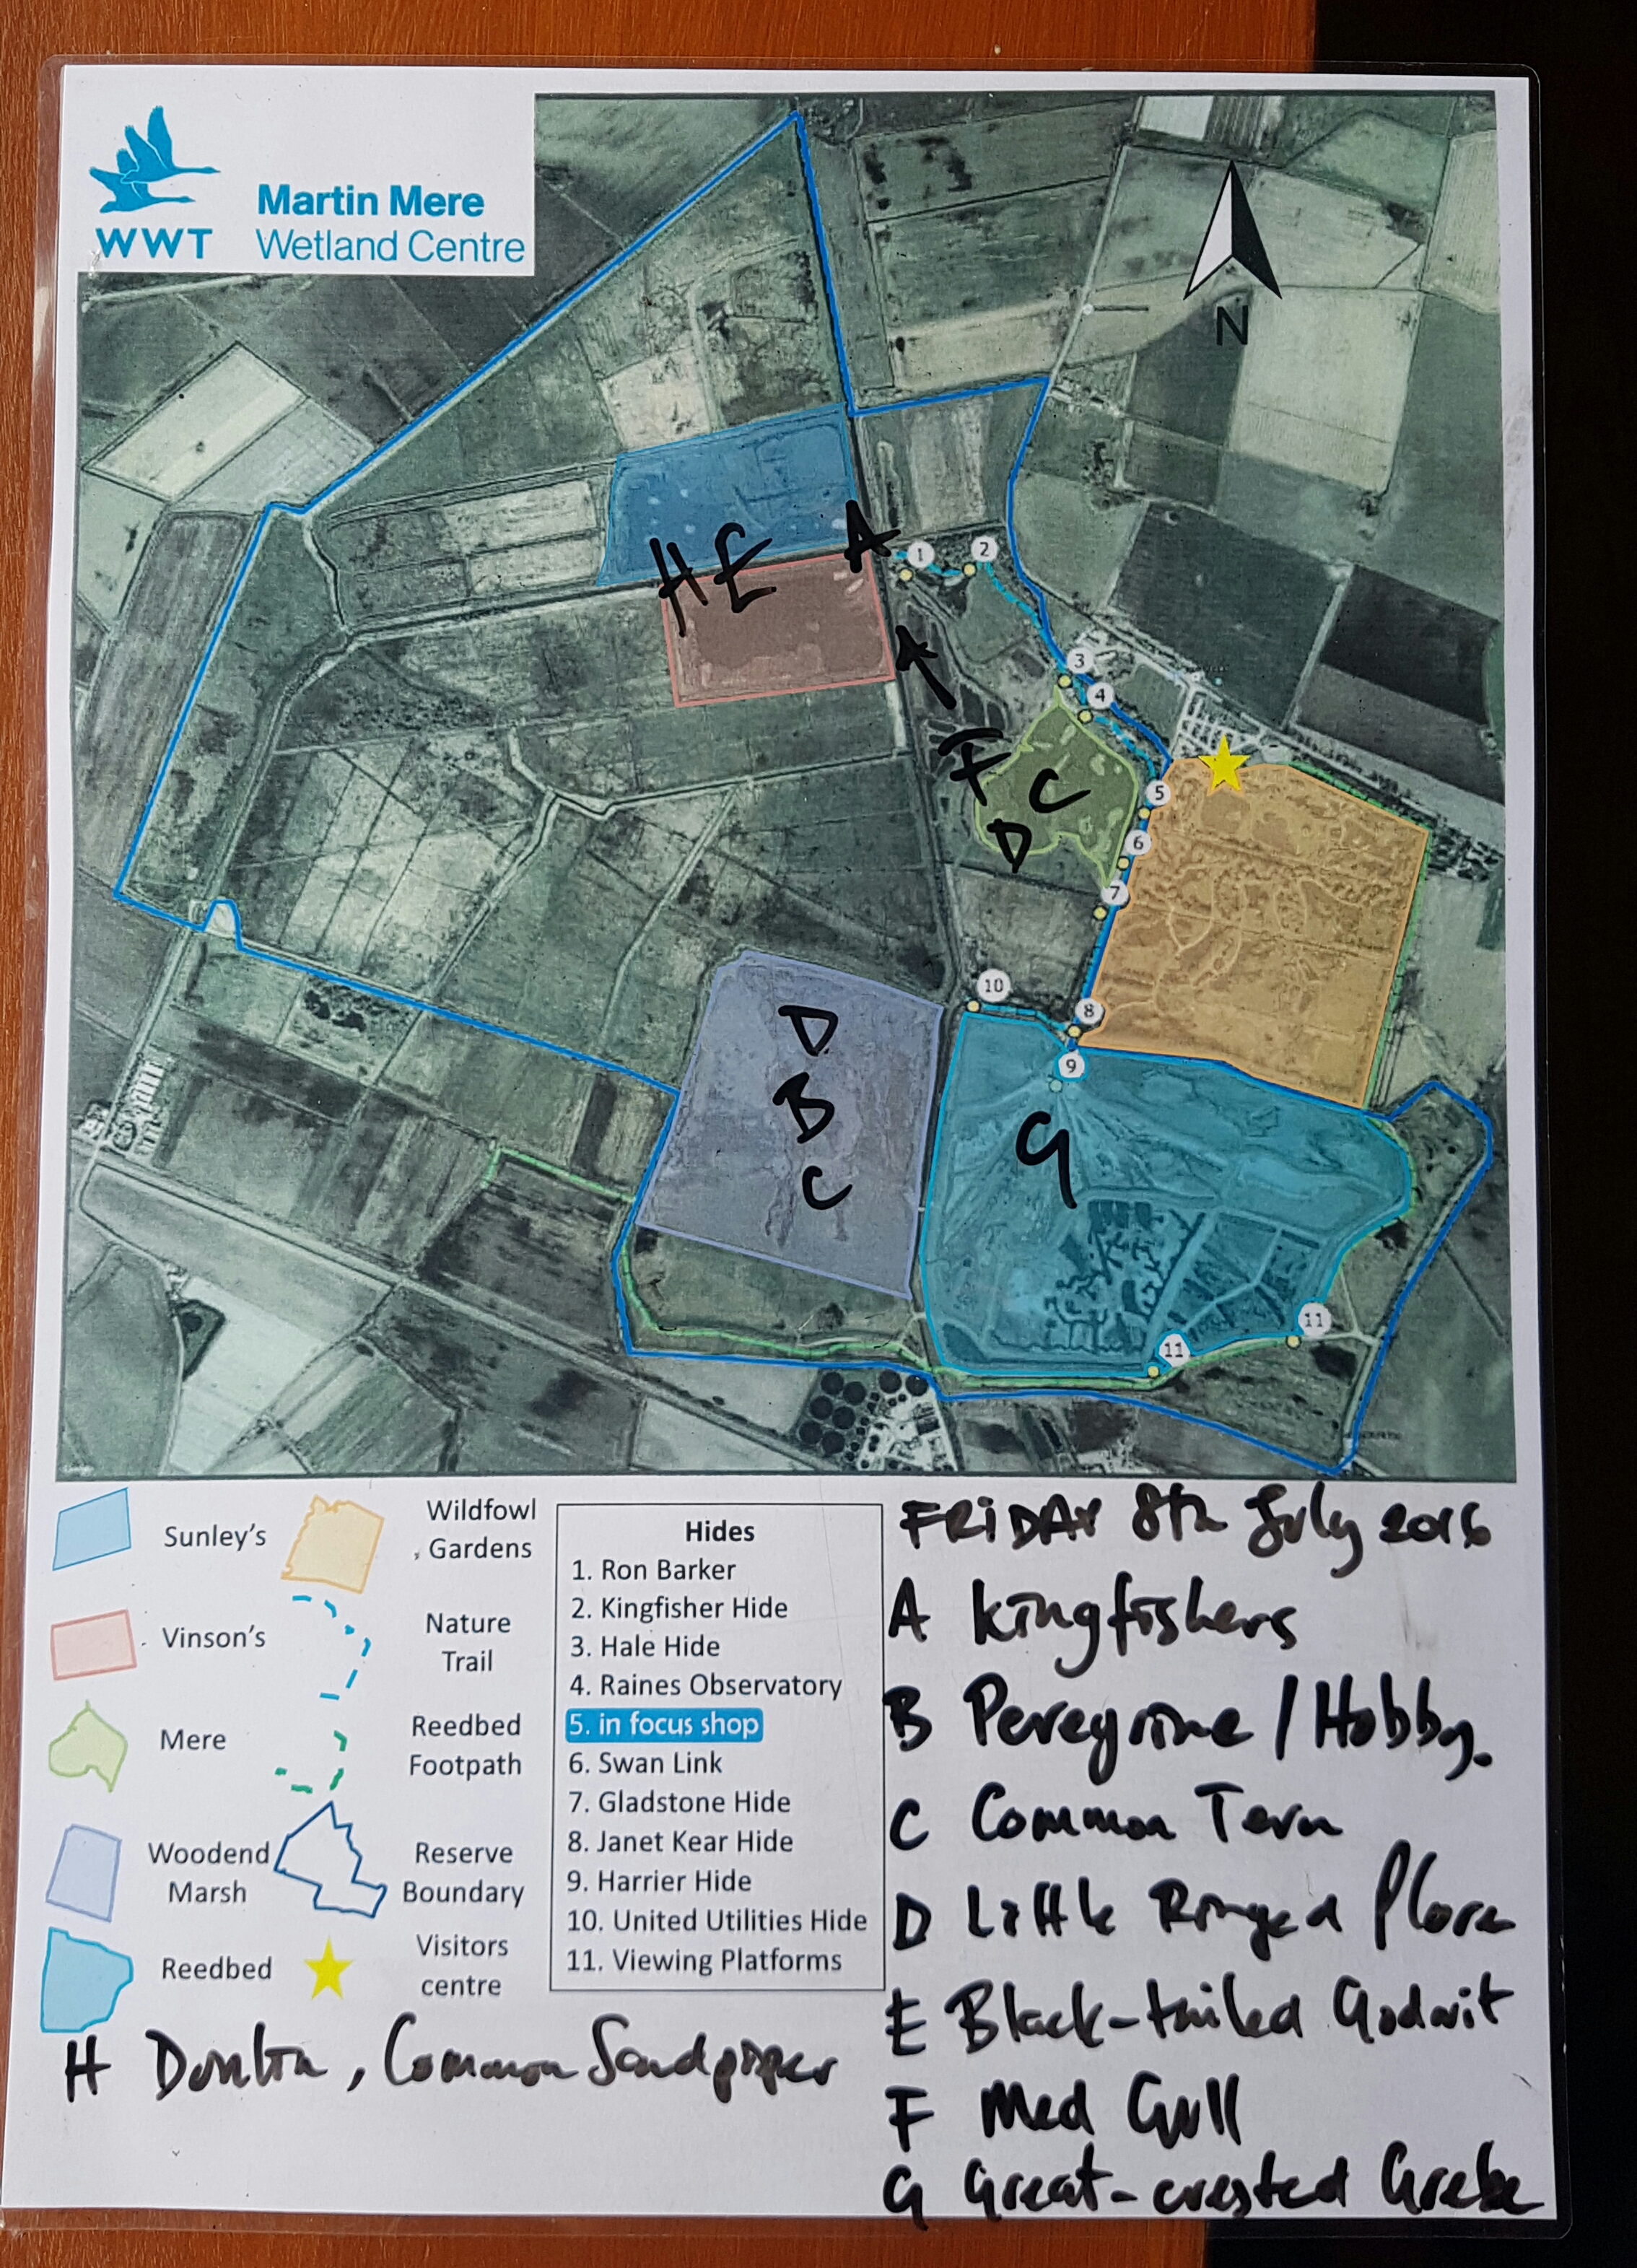 WWT
Martin Mere
Wetland Centre
N
A
H E
1
2
A
3
4
F C
D
5
6
7
10
8
9
D
B
C
G
11
11
Sunley's
Vinson's
Mere
Woodend
Marsh
Reedbed
Wildfowl
Gardens
Nature
Trail
Reedbed
Footpath
Reserve
Boundary
Visitors
centre
Hides
1. Ron Barker
2. Kingfisher Hide
3. Hale Hide
4. Raines Observatory
5. in focus shop
6. Swan Link
7. Gladstone Hide
8. Janet Kear Hide
9. Harrier Hide
10. United Utilities Hide
11. Viewing Platforms
FRIDAY 8th July 2016
A Kingfishers
B Peregrine / Hobby.
C Common Tern
D Little Ringed Plover
E Black-tailed Godwit
F Med Gull
G Great-crested Grebe
H Dunlin, Common Sandpiper